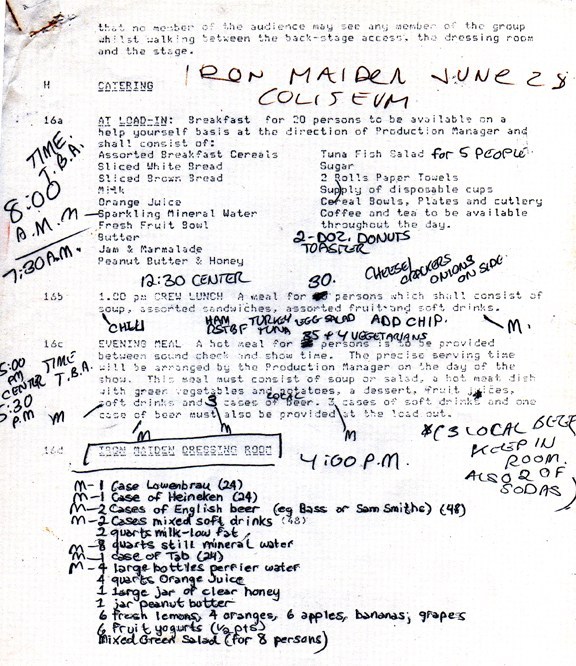 that no member of the audience may see any member of the group
whilst walking between the back-stage access, the dressing room
and the stage.
IRON MAIDEN JUNE 28
COLISEUM
H CATERING
16a AT LOAD-IN: Breakfast for 20 persons to be available on a
help yourself basis at the direction of Production Manager and
shall consist of:
TIME T.B.A.
8:00 A.M. M
7:30 A.M.
Assorted Breakfast Cereals Tuna Fish Salad for 5 PEOPLE
Sliced White Bread Sugar
Sliced Brown Bread 2 Rolls Paper Towels
Milk Supply of disposable cups
Orange Juice Cereal Bowls, Plates and cutlery
Sparkling Mineral Water Coffee and tea to be available
Fresh Fruit Bowl throughout the day.
Butter 2-DOZ. DONUTS
Jam & Marmalade TOASTER
Peanut Butter & Honey
12:30 CENTER 30. CHEESE/ CRACKERS
ONIONS ON SIDE
16b 1.00 pm CREW LUNCH A meal for persons which shall consist of
soup, assorted sandwiches, assorted fruit and soft drinks.
CHILI HAM TURKEY EGG SALAD ADD CHIP. M.
RSTBF TUNA
35 + 4 VEGETARIANS
16c EVENING MEAL A hot meal for persons is to be provided
between sound check and show time. The precise serving time
will be arranged by the Production Manager on the day of the
show. This meal must consist of soup or salad, a hot meat dish
with green vegetables and potatoes, a dessert, fruit juices,
soft drinks and cases of beer. 3 cases of soft drinks and one
case of beer must also be provided at the load out.
5:00 PM CENTER TIME T.B.A.
5:30 P.M M
3
M M M
* (3 LOCAL BEER
KEEP IN
ROOM.
ALSO 2 OF
SODAS)
16d IRON MAIDEN DRESSING ROOM 4:00 P.M.
M-1 Case Lowenbrau (24)
M-1 Case of Heineken (24)
M-2 Cases of English beer (eg Bass or Sam Smiths) (48)
M-2 Cases mixed soft drinks (48)
2 quarts milk-low fat
M-8 quarts still mineral water
M-1 case of Tab (24)
M-4 large bottles perrier water
4 quarts Orange Juice
1 large jar of clear honey
1 jar peanut butter
6 fresh lemons, 4 oranges, 6 apples, bananas, grapes
6 fruit yogurts (½ pts)
Mixed Green Salad (for 8 persons)